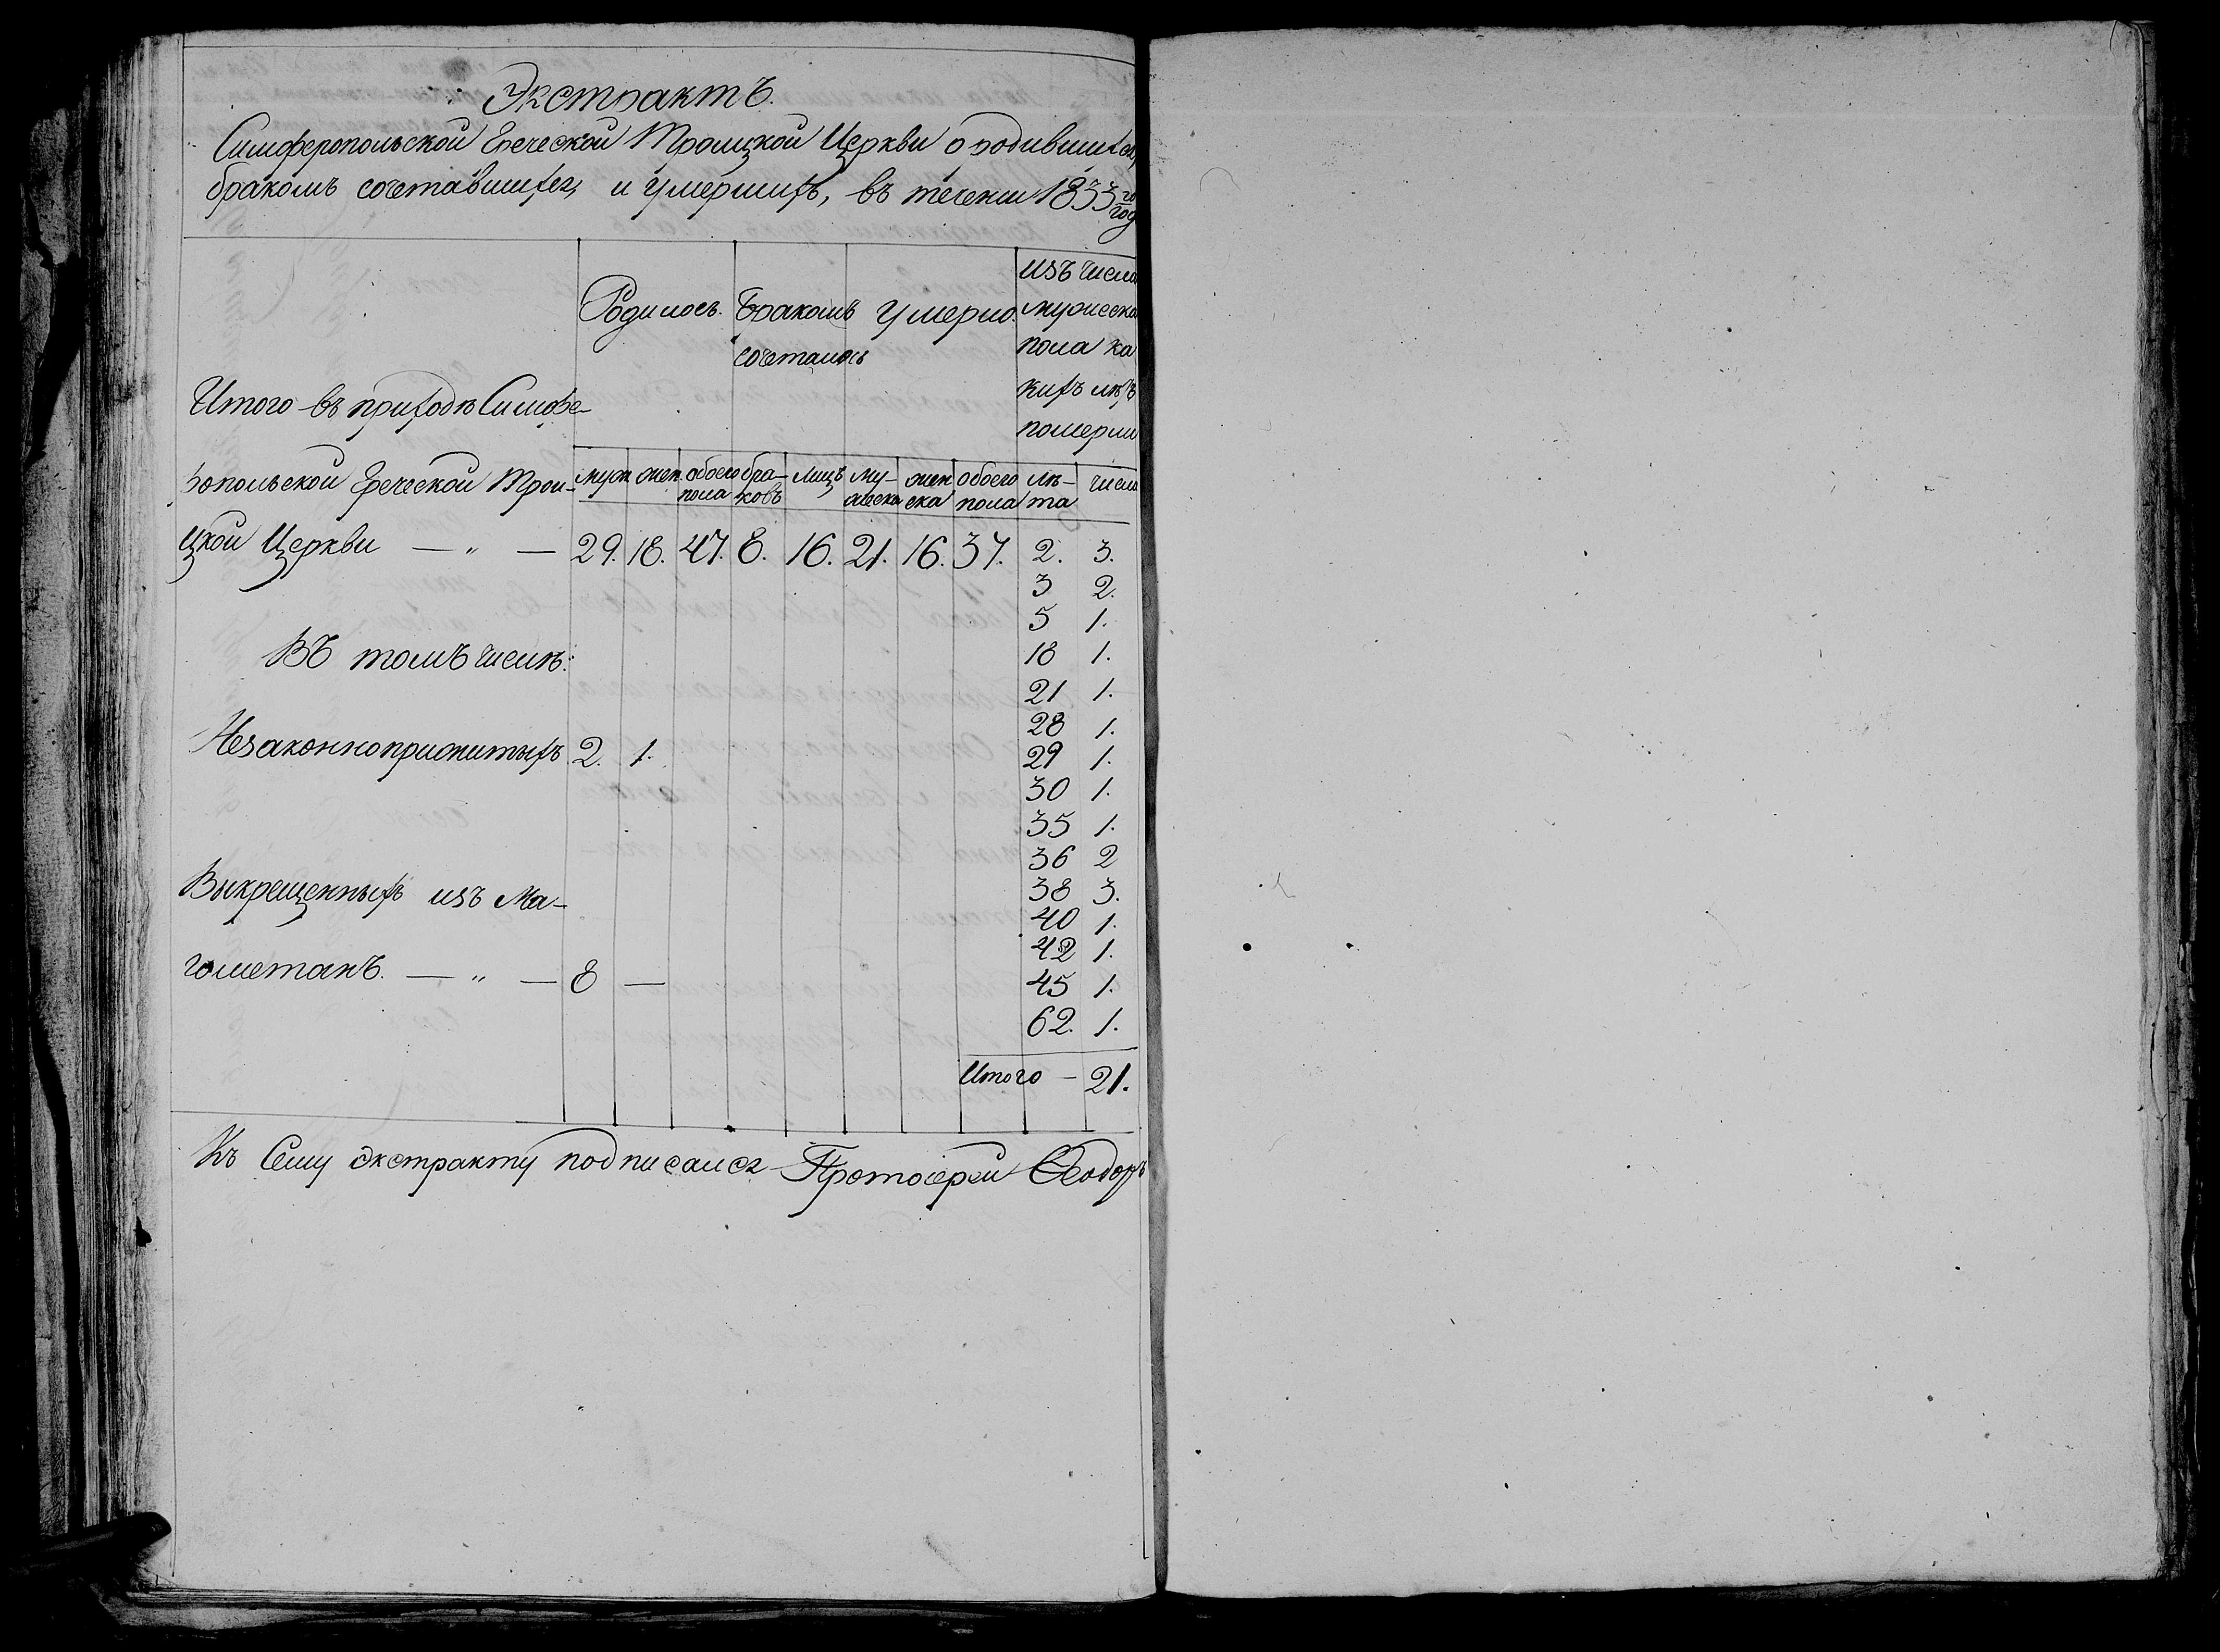 Экстрактъ.
Симферопольской Греческой Троицкой Церкви о родившихся,
бракомъ сочетавшихся, и умершихъ, въ течении 1833го год
Родилось. Бракомъ сочеталось Умерло. изъ числа мужеска пола какихъ лѣтъ померли
Итого въ приходѣ Симфе-
ропольской Греческой Трои-
муж жен обоего пола бра-ковъ лицъ му-жеска жен ска обоего пола лѣ-та числа
цкой Церкви — „ — 29. 18. 47. 8. 16. 21. 16. 37. 2. 3.
3 2.
5 1.
Въ томъ числѣ: 18 1.
21 1.
28 1.
Незаконноприжитыхъ 2. 1. 29 1.
30 1.
35 1.
36 2
Выкрещенныхъ изъ Ма- 38 3.
40 1.
42 1.
гометанъ. — „ — 8 — 45 1.
62. 1.
Итого — 21.
Къ Сему экстракту подписался Протоіерей Ѳеодоръ